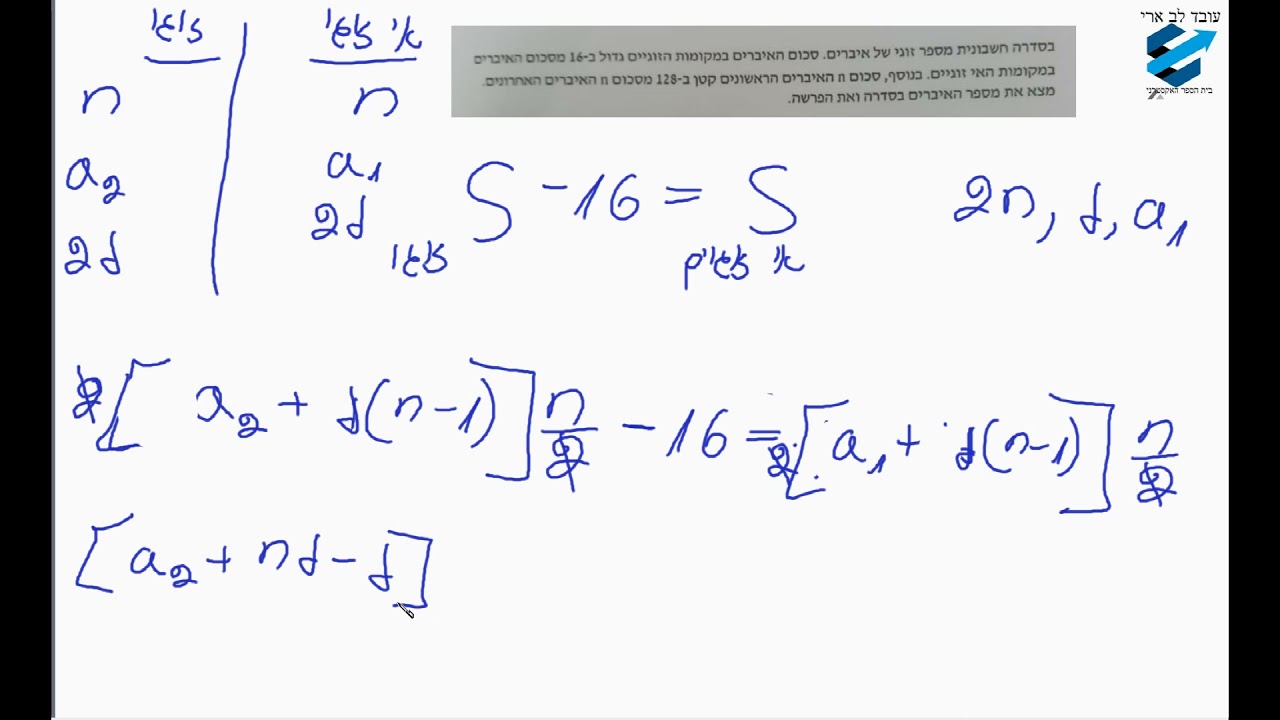 עובד לב ארי
בית הספר האקסטרני
בסדרה חשבונית מספר זוגי של איברים. סכום האיברים במקומות הזוגיים גדול ב-16 מסכום האיברים
במקומות האי זוגיים. בנוסף, סכום n האיברים הראשונים קטן ב-128 מסכום n האיברים האחרונים.
מצא את מספר האיברים בסדרה ואת הפרשה.
אי זוגי זוגי
n n
a₂ a₁
2d 2d
S זוגי - 16 = S אי זוגיים
2n, d, a₁
2[a₂ + d(n-1)] n/2 - 16 = 2[a₁ + d(n-1)] n/2
[a₂ + nd - d]